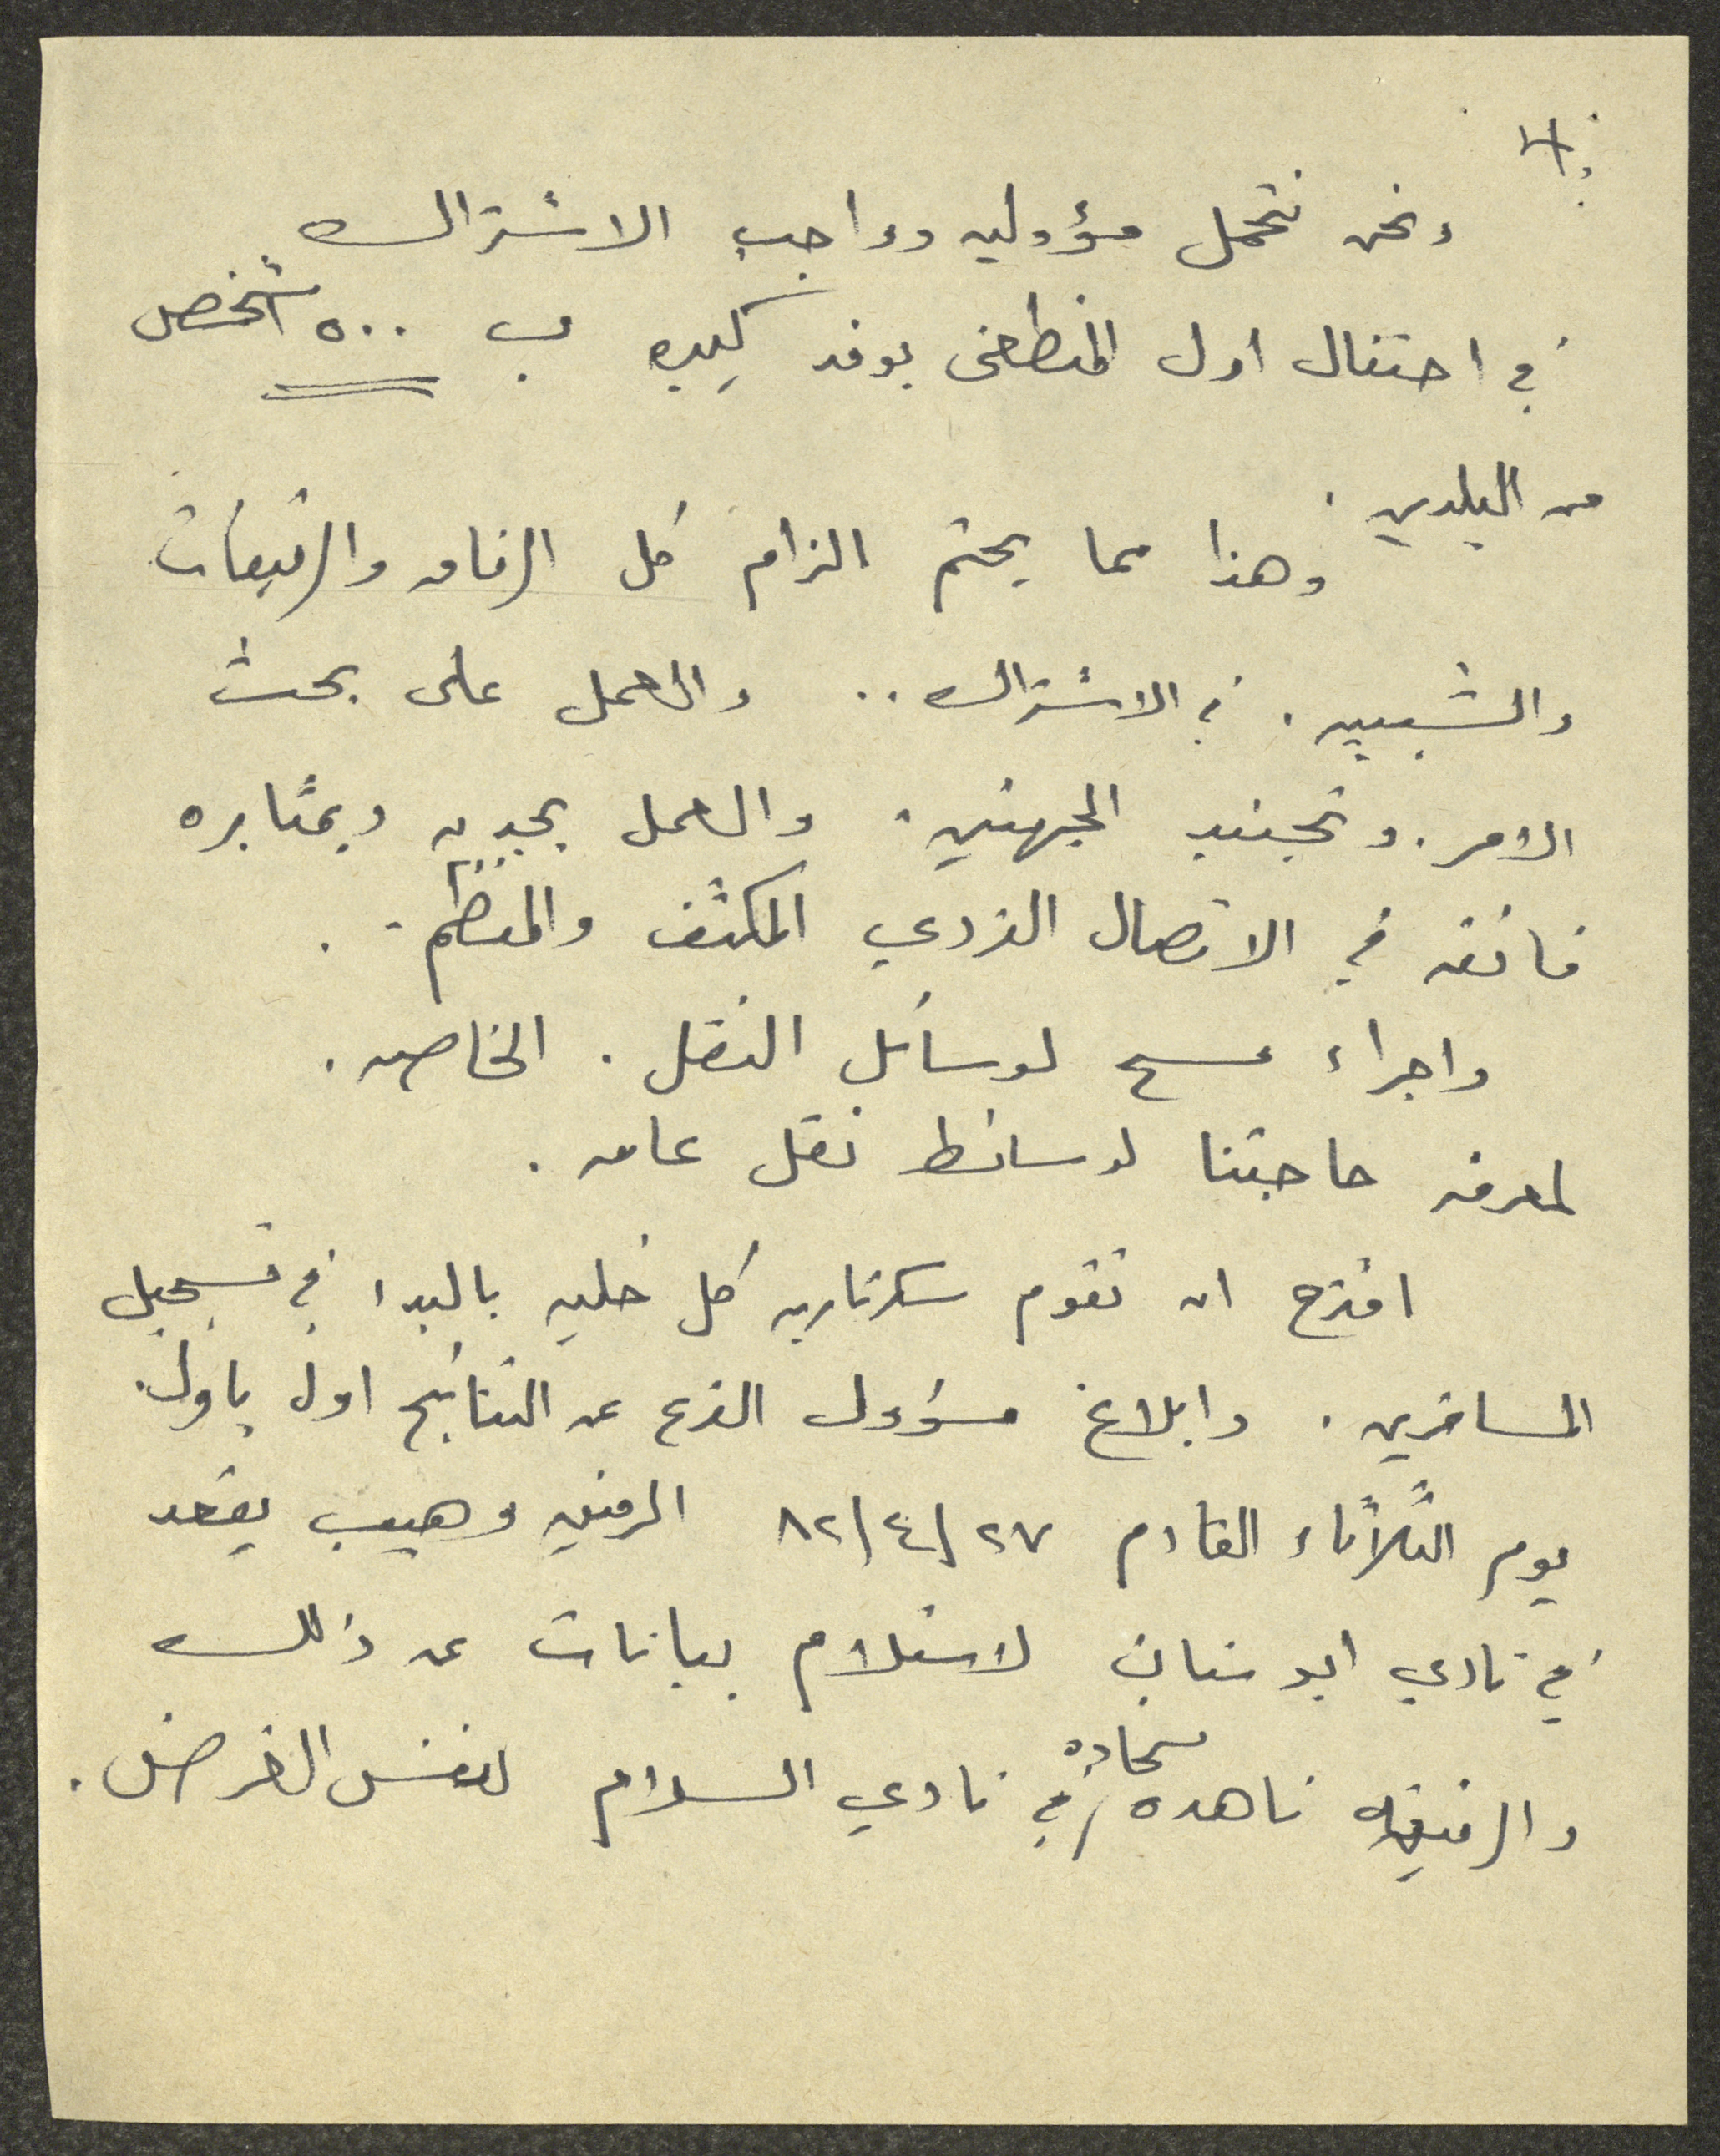 ونحن نتحمل مسؤوليه وواجب الاشتراك
في احتفال اول المنطقي بوفد كبير ب ٥٠٠ شخص
من البلدين .
وهذا مما يحتم الزام كل الرفاق والرفيقات
والشبيبه . في الاشتراك .. والعمل على بحث
الامر . وتجنيد الجبهتين . والعمل بجديه وبمثابره
فائقه في الاتصال الفردي المكثف والمنظم .
واجراء مسح لوسائل النقل . الخاصه .
لمعرفه حاجتنا لوسائط نقل عامه .
اقترح ان تقوم سكرتاريه كل خليه بالبدء في تسجيل
المسافرين . وابلاغ مسؤول الفرع عن النتائج اول باول .
يوم الثلاثاء القادم ٢٧/٤/٨٢ الرفيق وهيب يقعد
في نادي ابو سنان لاستلام بيانات عن ذلك
والرفيقه ناهده شحاده في نادي السلام لنفس الغرض .